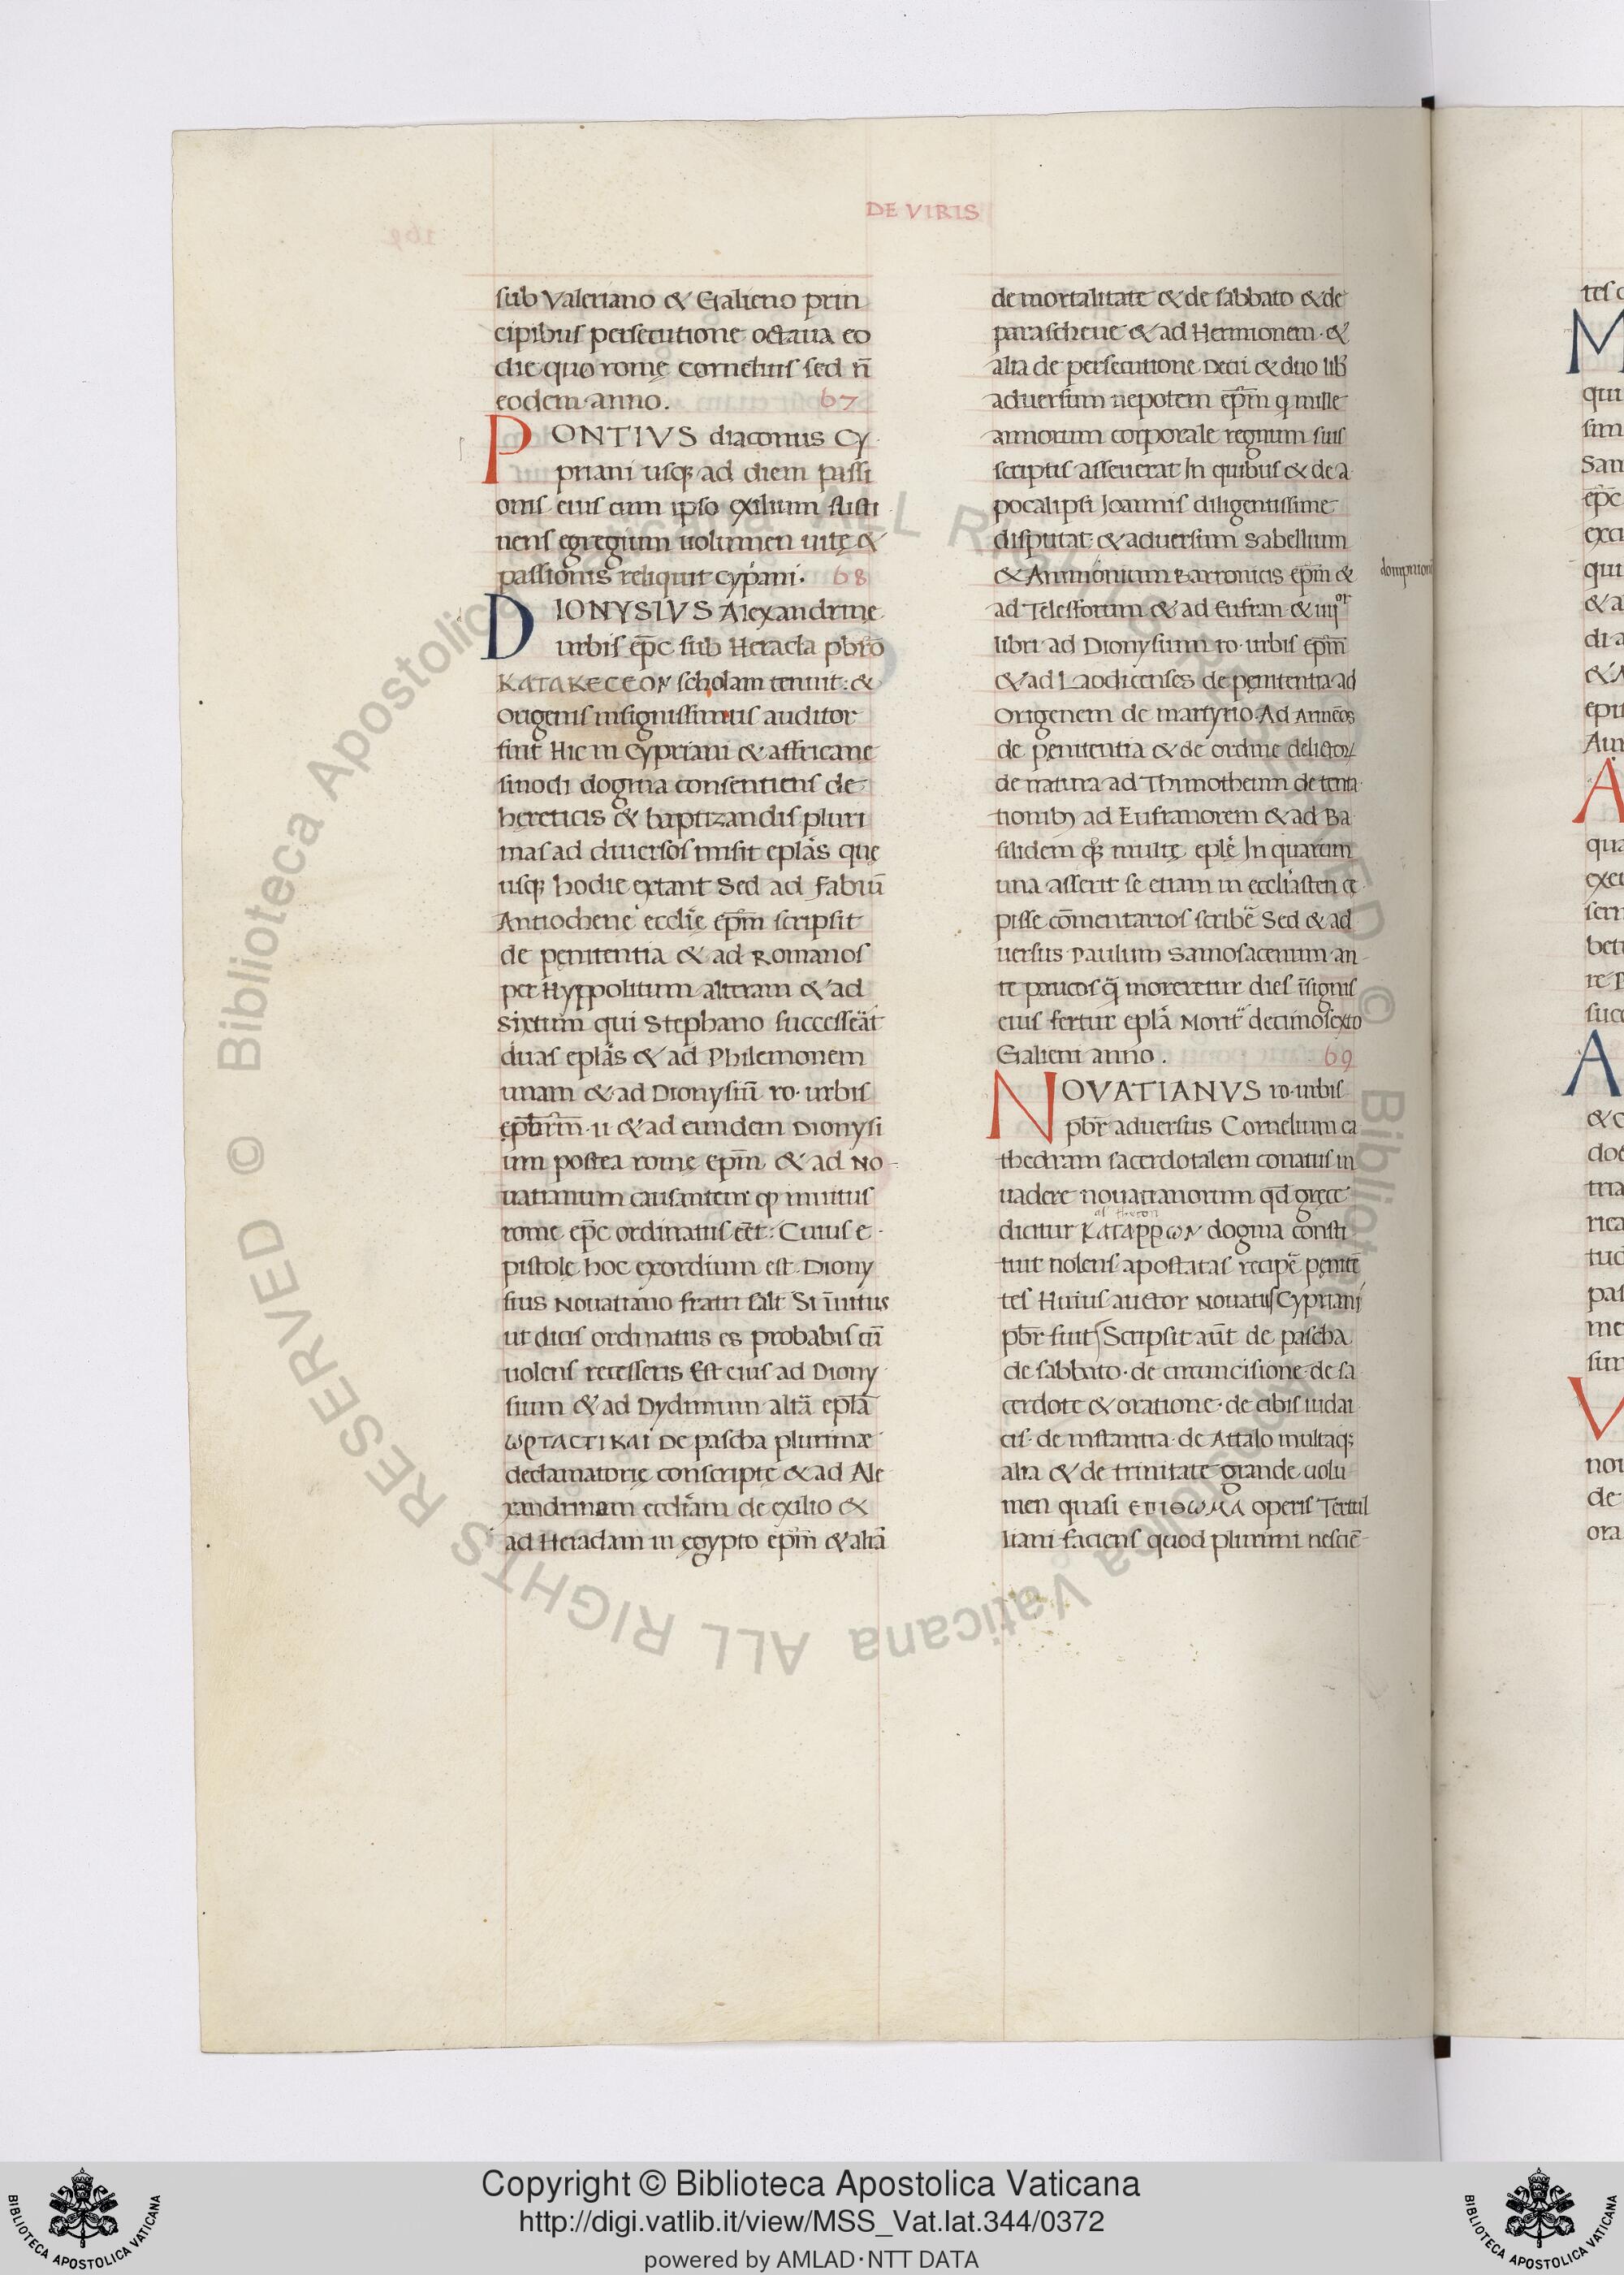 DE VIRIS
sub Valeriano & Galieno prin
cipibus persecutione octaua eo
die quo romę Cornelius sed n̄
eodem anno. 67
PONTIVS diaconus Cy
priani usq; ad diem passi
onis eius cum ipso exilium susti
nens egregium uolumen uitę &
passionis reliquit cyp̄ani. 68
DIONYSIVS Alexandrine
urbis ep̄c sub Heracla pb̄ro
KATAKECEON scholam tenuit: &
Origenis insignissimus auditor
fuit Hic in Cypriani & affricane
sinodi dogma consentiens de
hereticis & baptizandis pluri
mas ad diuersos misit ep̄las que
usq; hodie extant Sed ad fabiū
Antiochene eccl̄ię ep̄m scripsit
de penitentia & ad Romanos
per Hyppolitum alteram & ad
Sixtum qui Stephano successāt
duas ep̄las & ad Philemonem
unam & ad Dionysiū ro. urbis
& ad eundem Dionysi
um postea romę ep̄m & ad No-
uatianum causantem inuitus
rome ep̄c ordinatus eēt: Cuius e-
pistole hoc exordium est. Diony
sius Nouatiano fratri salt Si īuitus
ut dicis ordinatus es probabis cū
uolens recesseris Est eius ad Diony
sium & ad Dydimum altā ep̄la
ωρταστικαι De pascha plurimæ
declamatorię conscriptę & ad Ale
xandrinam eccl̄iam de exilio &
ad Heradam in egypto ep̄m & aliā
de mortalitate & de sabbato & de
parascheue & ad Hermionem. &
alia de persecutione Decii & duo lib̄
aduersum nepotem ep̄m q mille
annorum corporale regnum suis
scriptis asseuerat In quibus & de a
pocalipsi Joannis diligentissime
disputat & aduersum Sabellium
& Ammonium Barronicis ep̄m &
ad Telesforum & ad Eufran & iiii^or
libri ad Dionysium ro. urbis ep̄m
& ad Laodicenses de penitentia ad
Origenem de martyrio. Ad Armēos
de penitentia & de ordine delictor
de natura ad Thimotheum de tenta
tionib; ad Eufranorem & ad Ba
silidem q; multę ep̄le In quarum
una asserit se etiam in eccl̄iasten cę
pisse cōmentarios scrib̄e Sed & ad
uersus Paulum Samosacenum an-
te paucos q̄ moreretur dies īsignis
eius fertur ep̄la Morit decimosexto
Galieni anno. 69
NOVATIANVS ro. urbis
pb̄r aduersus Cornelium ca
thedram sacerdotalem conatus in
uadere nouatianorum qd̄ gręce
dicitur ΚΑΤΑΡΡωΝ dogma consti
tuit nolens apostatas recip̄e penitē
tes Huius auctor Nouatus Cypriani
pb̄r fuit Scripsit aūt de pascha
de sabbato. de circuncisione de sa
cerdote & oratione. de cibis iudai
cis. de instantia. de Attalo multaq;
alia & de trinitate grande uolu
men quasi ΕΠΙΘωΜΑ operis Tertul
liani faciens quod plurimi nesciē-
Copyright © Biblioteca Apostolica Vaticana
http://digi.vatlib.it/view/MSS_Vat.lat.344/0372
powered by AMLAD·NTT DATA